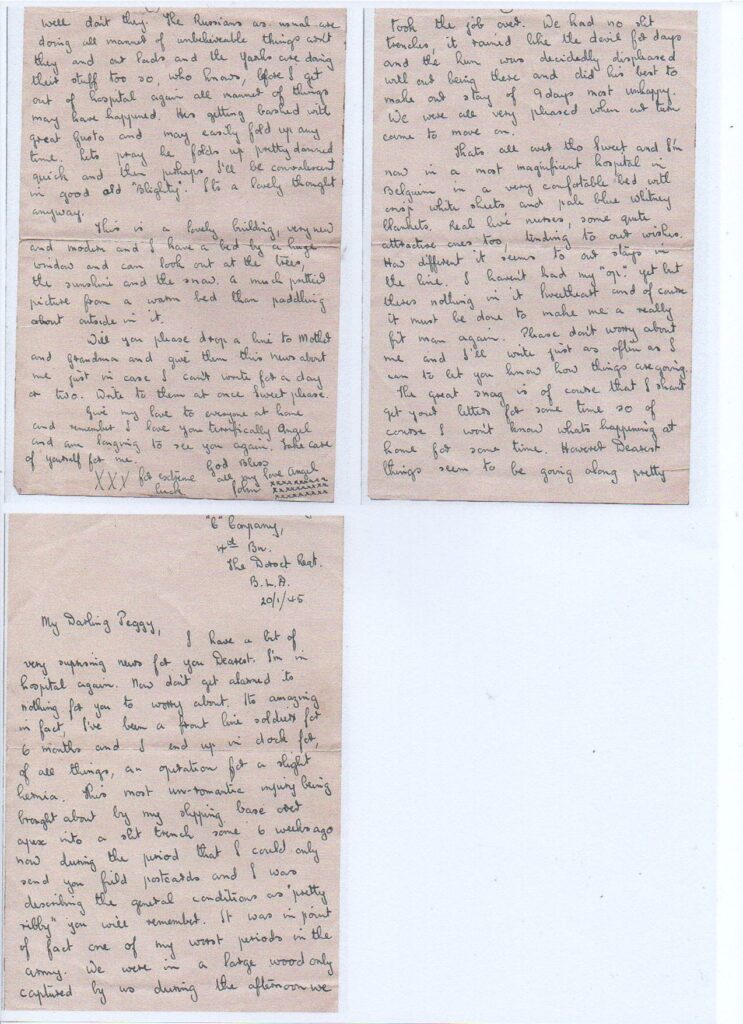 "C" Company,
4th Bn.
The Dorset Regt.
B.L.A.
20/1/45
My Darling Peggy,
I have a bit of
very suprising news for you Dearest. I'm in
hospital again. Now don't get alarmed its
nothing for you to worry about. Its amazing
in fact, I've been a front line soldier for
6 months and I end up in dock for,
of all things, an operation for a slight
hernia. This most un-romantic injury being
brought about by my slipping base over
apex into a slit trench some 6 weeks ago
now during the period that I could only
send you field postcards and I was
describing the general conditions as "pretty
ribby" you will remember. It was in point
of fact one of my worst periods in the
army. We were in a large wood only
captured by us during the afternoon we
took the job over. We had no slit
trenches, it rained like the devil for days
and the hun was decidedly displeased
with our being there and did his best to
make our stay of 9 days most unhappy.
We were all very pleased when our turn
came to move on.
Thats all over tho Sweet and I'm
now in a most magnificent hospital in
Belguim in a very comfortable bed with
crisp white sheets and pale blue whitney
blankets. Real live nurses, some quite
attractive ones too, tending to our wishes.
How different it seems to our stays in
the line. I haven't had my "op" yet but
theres nothing in it Sweetheart and of course
it must be done to make me a really
fit man again. Please don't worry about
me and I'll write just as often as I
can to let you know how things are going.
The great snag is of course that I shant
get your letters for some time so of
course I won't know whats happening at
home for some time. However Dearest
things seem to be going along pretty
well don't they. The Russians as usual are
doing all manner of unbelieveable things aren't
they and our lads and the Yanks are doing
their stuff too so, who knows, before I get
out of hospital again all manner of things
may have happened. Hes getting bashed with
great gusto and may easily fold up any
time. Lets pray he folds up pretty damned
quick and then perhaps I'll be convalescent
in good old "Blighty". Its a lovely thought
anyway.
This is a lovely building, very new
and modern and I have a bed by a huge
window and can look out at the trees,
the sunshine and the snow. A much prettier
picture from a warm bed than paddling
about outside in it.
Will you please drop a line to Mother
and grandma and give them this news about
me just in case I can't write for a day
or two. Write to them at once Sweet please.
Give my love to everyone at home
and remember I love you terrifically Angel
and am longing to see you again. Take care
of yourself for me.
God Bless
all my love Angel
John xxxxxxxx
xxxxxxxx
XXX for extreme
luck